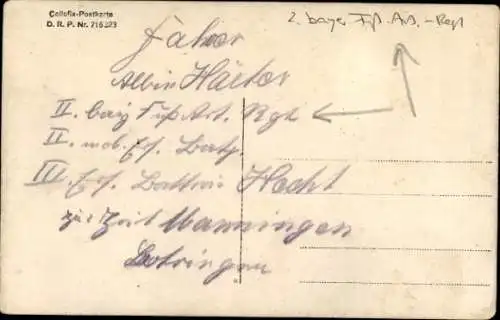 Cellofix-Postkarte
D. R. P. Nr. 716323
2. bayer. Fuß. Art. - Regt
Fahrer
Albin Härter
II. bay Fuß Art. Rgt
II. mob. Ers. Batt.
III. Ers. Batterie Hecht
zur Zeit Manningen
Lotringen